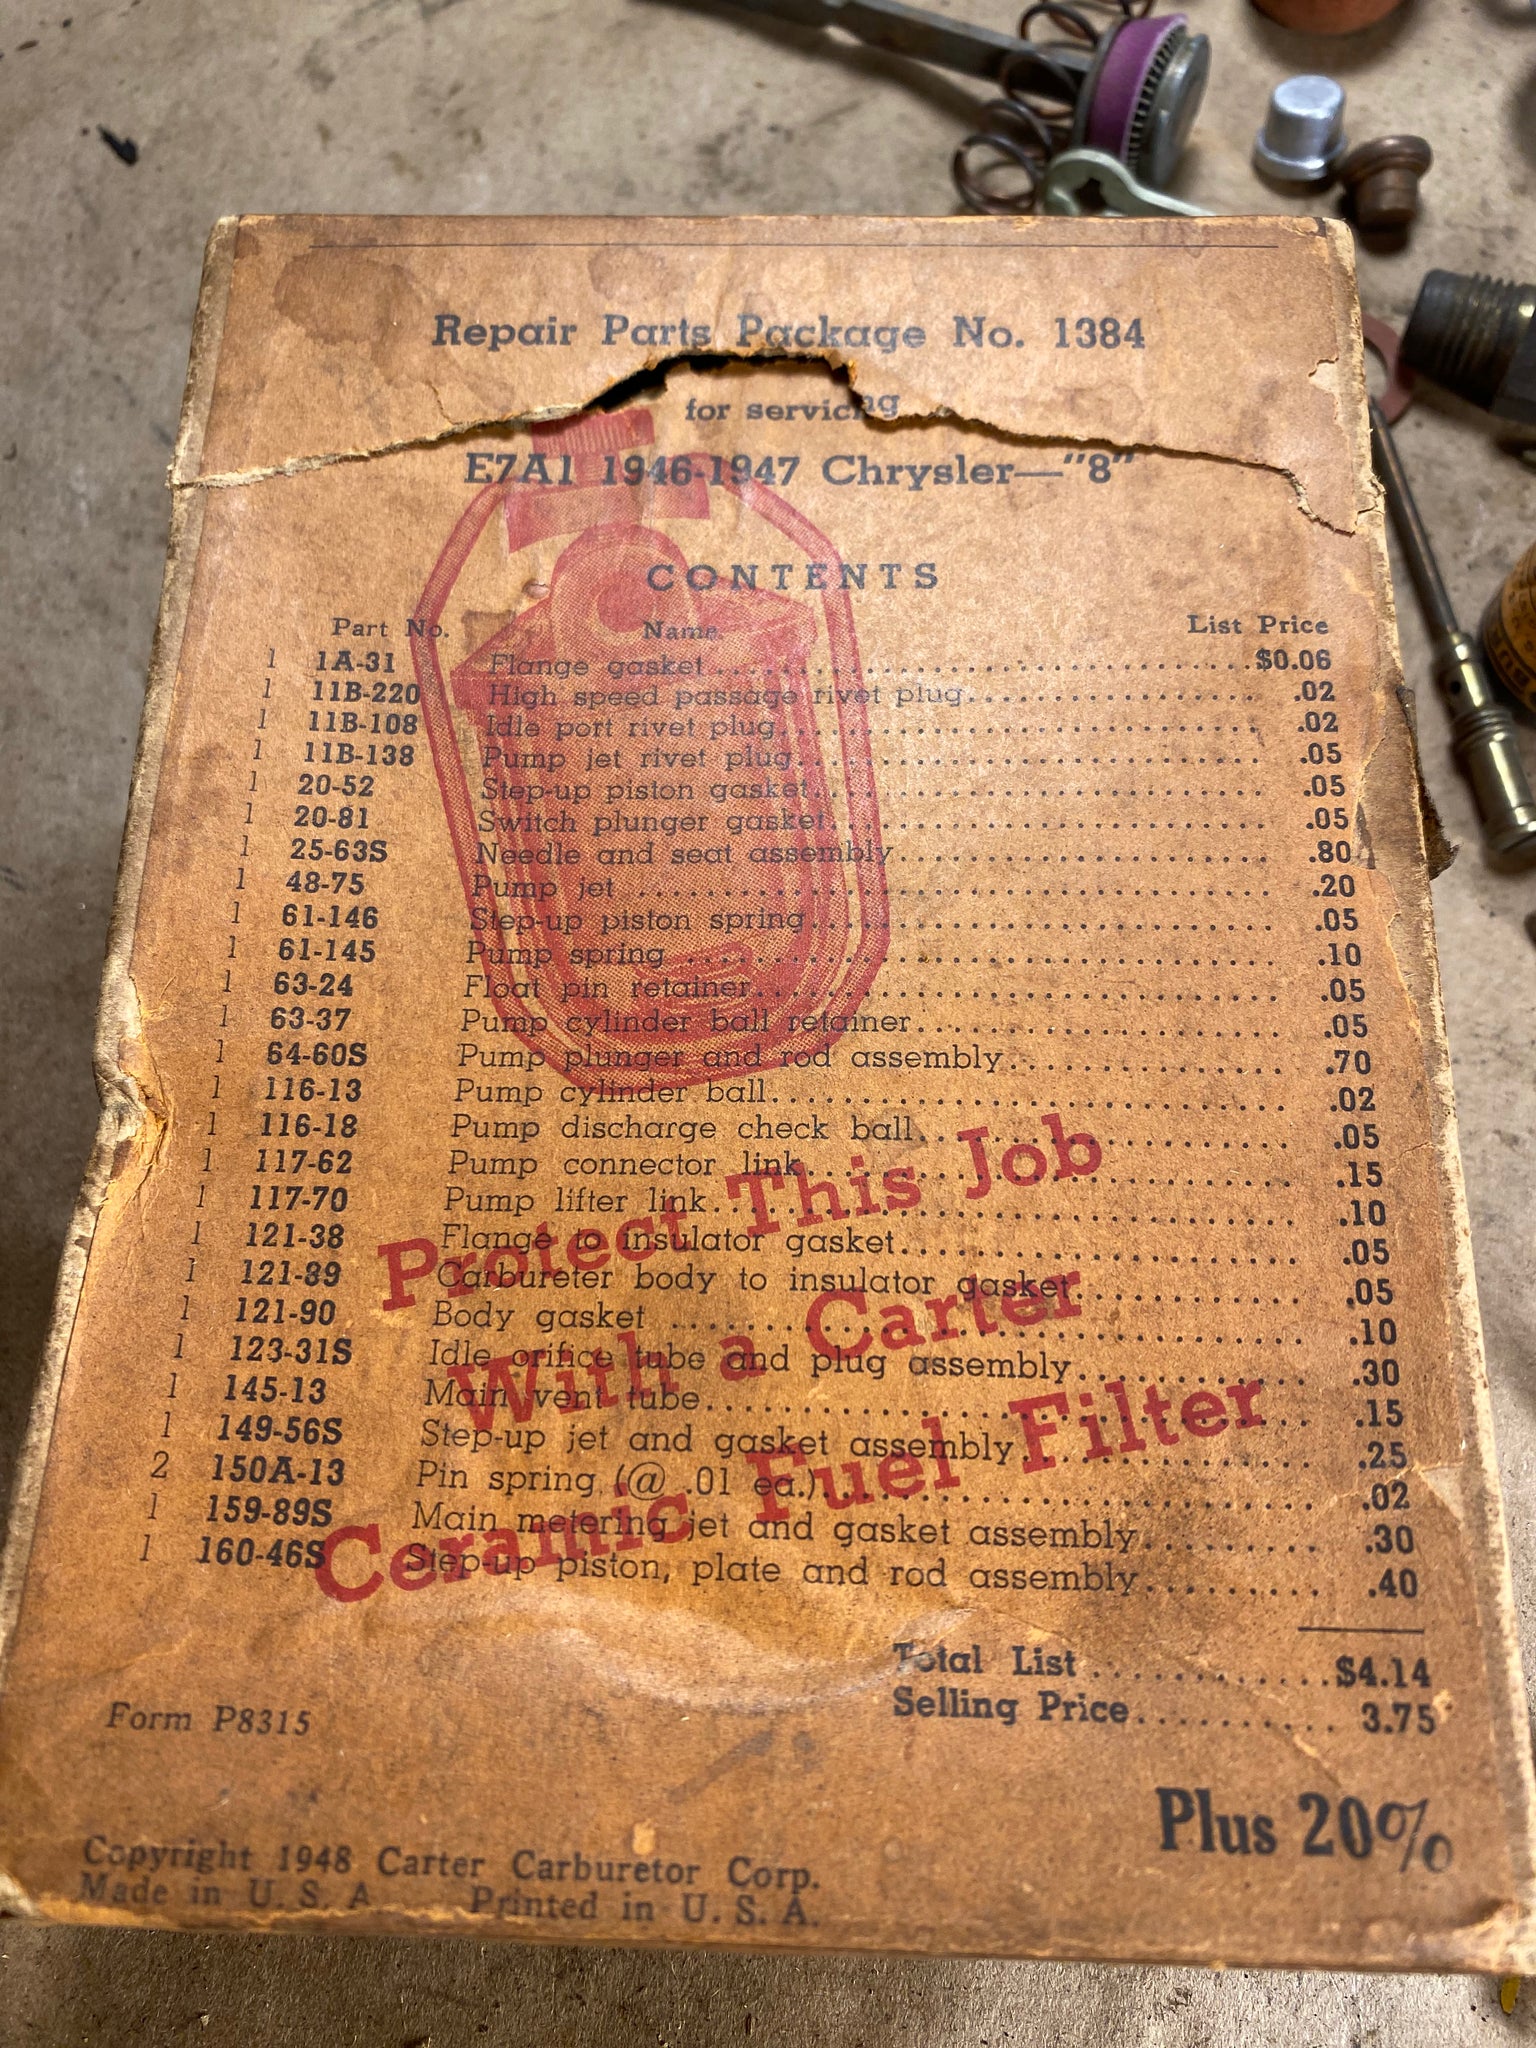 Repair Parts Package No. 1384
for servicing
E7A1 1946-1947 Chrysler—"8"
CONTENTS
Part No. Name List Price
1 1A-31 Flange gasket $0.06
1 11B-220 High speed passage rivet plug .02
1 11B-108 Idle port rivet plug .02
1 11B-138 Pump jet rivet plug .05
1 20-52 Step-up piston gasket .05
1 20-81 Switch plunger gasket .05
1 25-63S Needle and seat assembly .80
1 48-75 Pump jet .20
1 61-146 Step-up piston spring .05
1 61-145 Pump spring .10
1 63-24 Float pin retainer .05
1 63-37 Pump cylinder ball retainer .05
1 64-60S Pump plunger and rod assembly .70
1 116-13 Pump cylinder ball .02
1 116-18 Pump discharge check ball .05
1 117-62 Pump connector link .15
1 117-70 Pump lifter link .10
1 121-38 Flange to insulator gasket .05
1 121-89 Carbureter body to insulator gasket .05
1 121-90 Body gasket .10
1 123-31S Idle orifice tube and plug assembly .30
1 145-13 Main vent tube .15
1 149-56S Step-up jet and gasket assembly .25
2 150A-13 Pin spring (@ .01 ea.) .02
1 159-89S Main metering jet and gasket assembly .30
1 160-46S Step-up piston, plate and rod assembly .40
Protect This Job
With a Carter
Ceramic Fuel Filter
Total List $4.14
Selling Price 3.75
Form P8315
Plus 20%
Copyright 1948 Carter Carburetor Corp.
Made in U. S. A Printed in U. S. A.